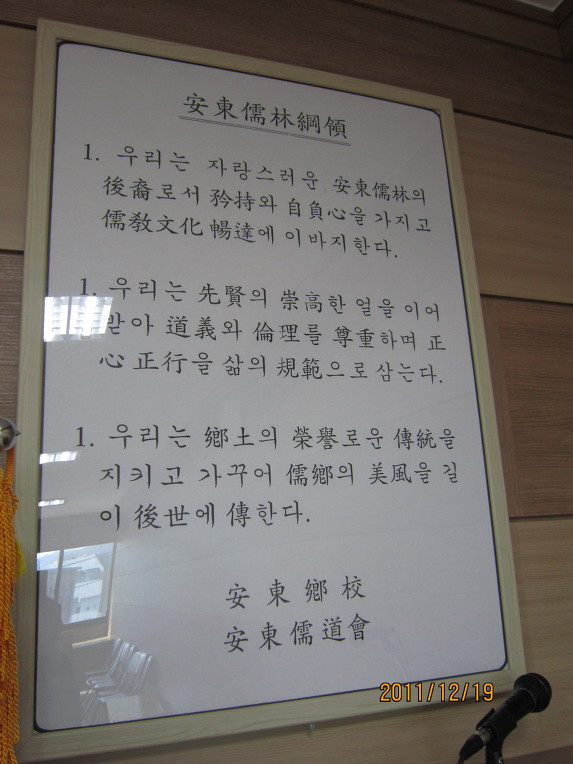 安東儒林綱領
1. 우리는 자랑스러운 安東儒林의
後裔로서 矜持와 自負心을 가지고
儒敎文化 暢達에 이바지한다.
1. 우리는 先賢의 崇高한 얼을 이어
받아 道義와 倫理를 尊重하며 正
心 正行을 삶의 規範으로 삼는다.
1. 우리는 鄕土의 榮譽로운 傳統을
지키고 가꾸어 儒鄕의 美風을 길
이 後世에 傳한다.
安東鄕校
安東儒道會
2011/12/19